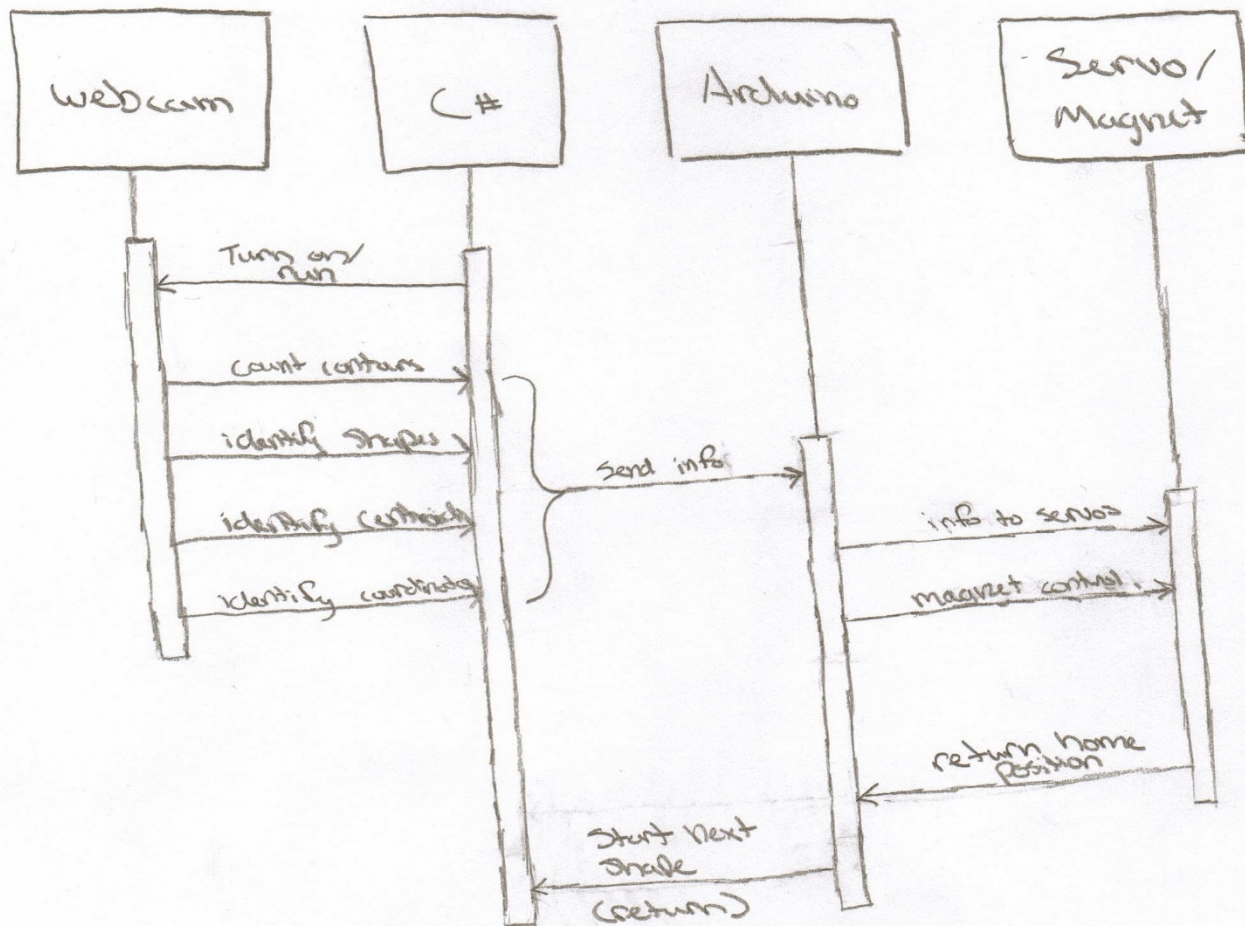 Webcam
C#
Arduino
Servo/
Magnet
Turn on/
run
count contours
identify shapes
identify centroids
identify coordinates
Send info
info to servos
magnet control
return home
position
Start next
shape
(return)